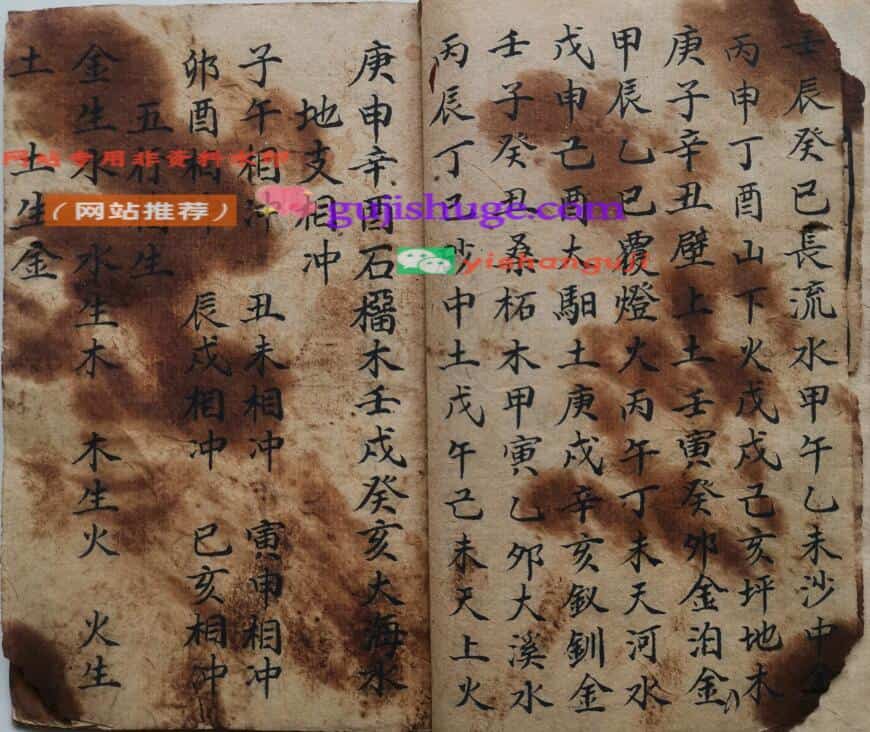 壬辰癸巳長流水甲午乙未沙中金
丙申丁酉山下火戊戌己亥坪地木
庚子辛丑壁上土壬寅癸卯金泊金
甲辰乙巳覆燈火丙午丁未天河水
戊申己酉大馹土庚戌辛亥釵釧金
壬子癸丑桑柘木甲寅乙卯大溪水
丙辰丁巳沙中土戊午己未天上火
庚申辛酉石榴木壬戌癸亥大海水
地支相冲
子午相冲 丑未相冲 寅申相冲
卯酉相 辰戌相冲 巳亥相冲
五行 生
金生水 水生木 木生火 火生
土 土生金
(网站推荐)
gujishuge.com
yishanguji